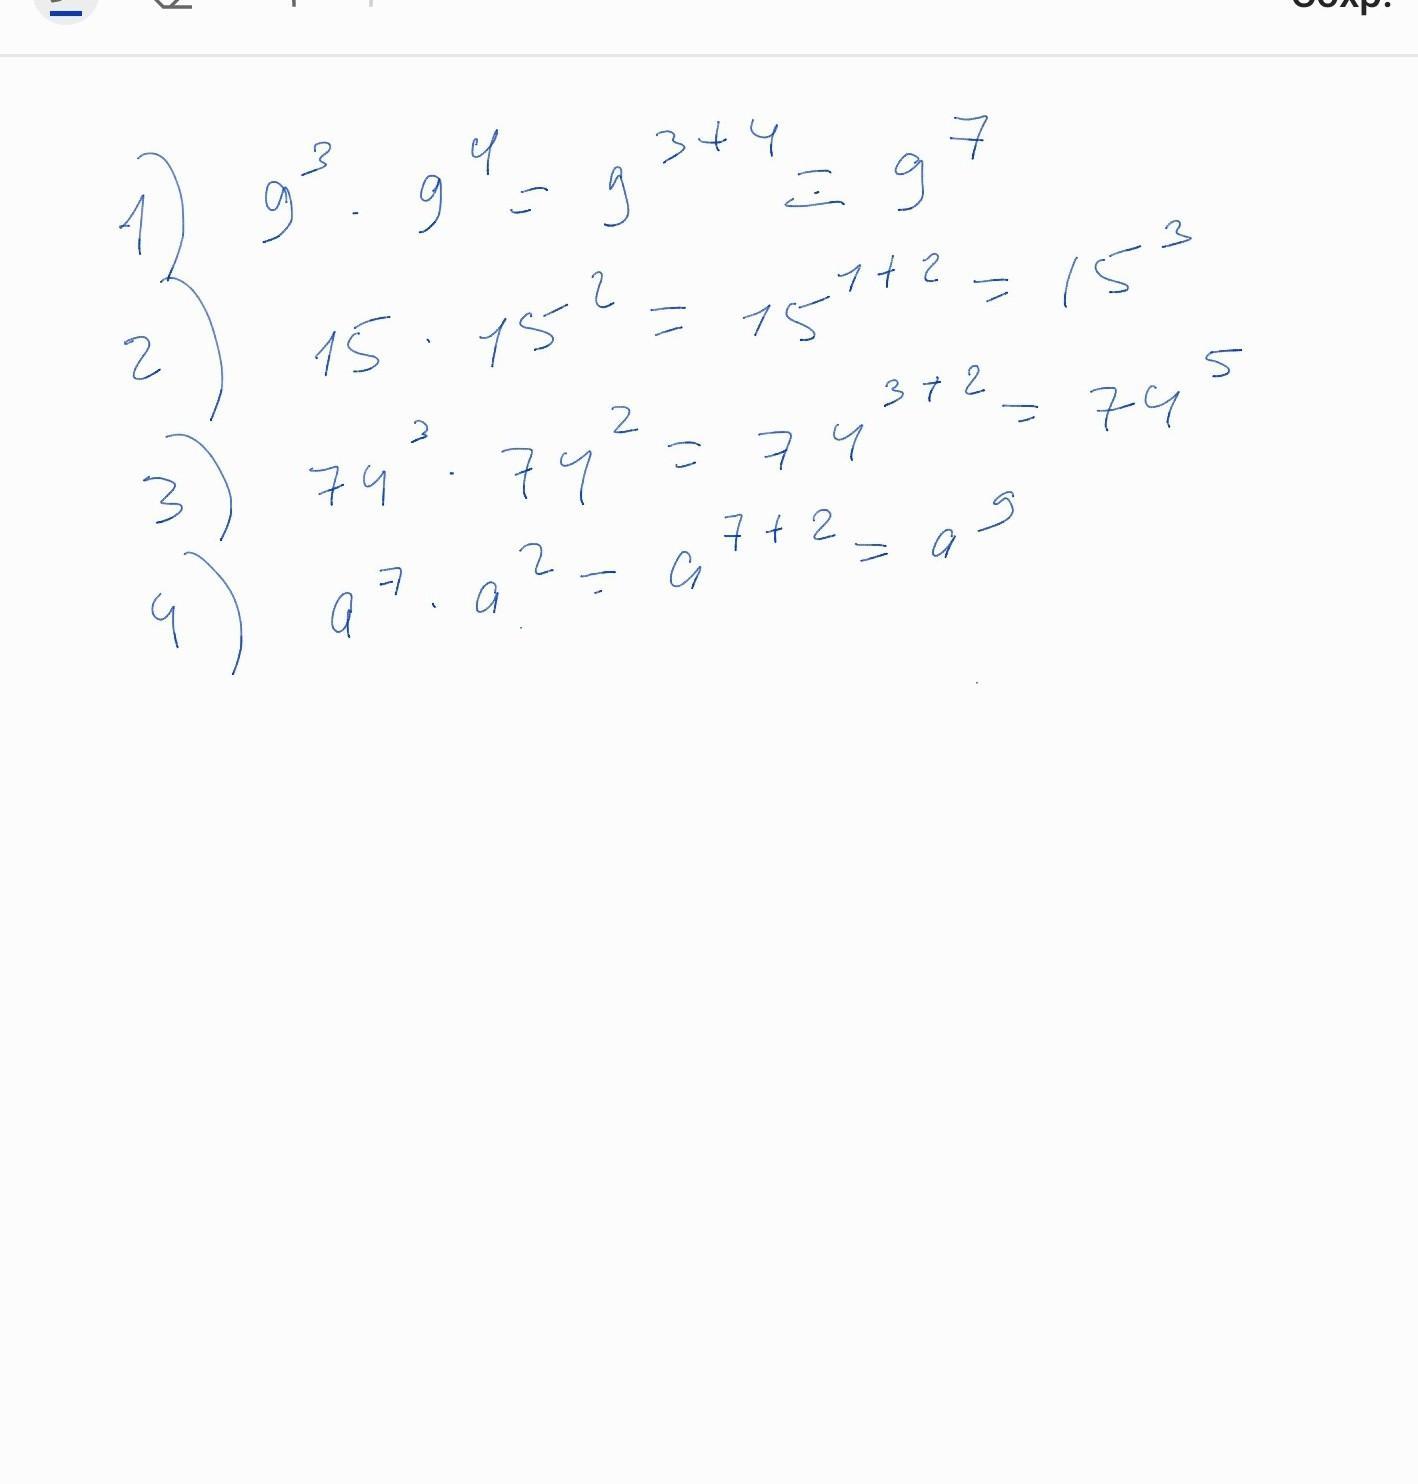 Сохр.
1) 9³ · 9⁴ = 9³⁺⁴ = 9⁷
2) 15 · 15² = 15¹⁺² = 15³
3) 74³ · 74² = 74³⁺² = 74⁵
4) a⁷ · a² = a⁷⁺² = a⁹